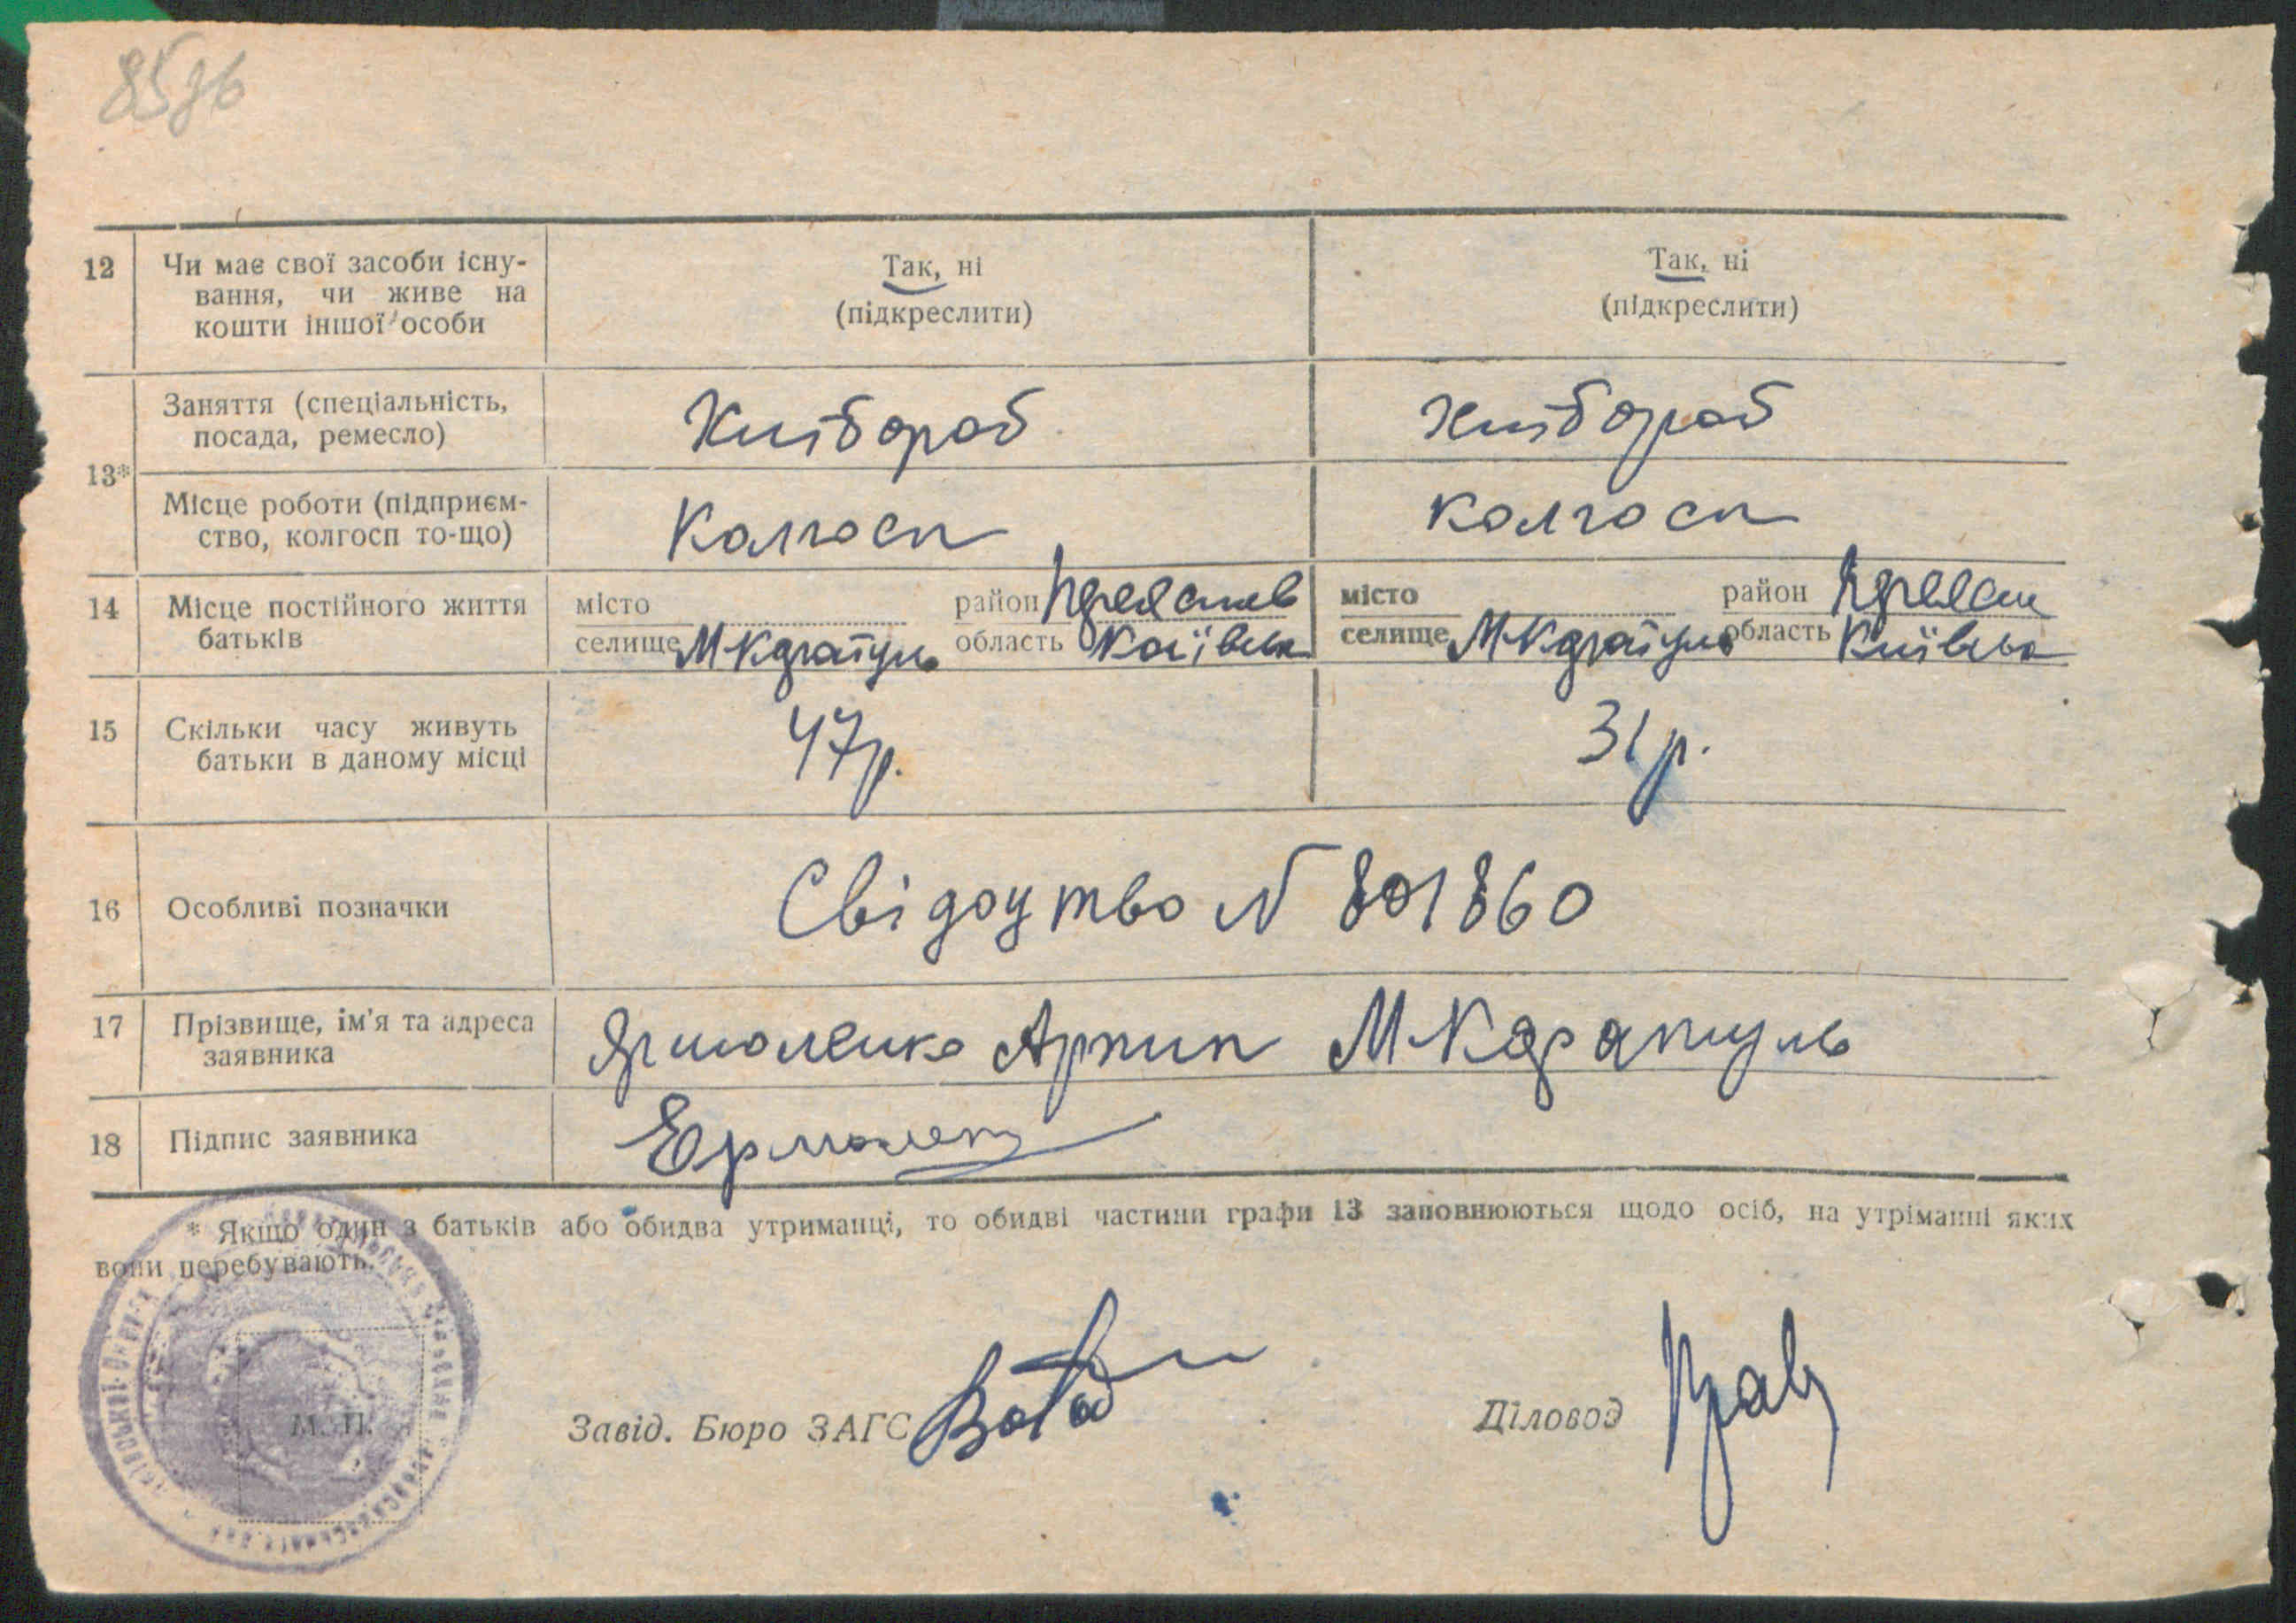 85зв
12 Чи має свої засоби існу- Так, ні Так, ні
вання, чи живе на (підкреслити) (підкреслити)
кошти іншої особи
Заняття (спеціальність, Хлібороб Хлібороб
посада, ремесло)
13*
Місце роботи (підприєм- Колгосп Колгосп
ство, колгосп то-що)
14 Місце постійного життя місто район місто район
батьків селище МКаратуль область Київськ селище МКаратуль область Київськ
15 Скільки часу живуть 47р. 31р.
батьки в даному місці
16 Особливі позначки Свідоцтво N 801860
17 Прізвище, ім'я та адреса Ярмоленко Архип МКаратуль
заявника
18 Підпис заявника
* Якщо один з батьків або обидва утриманці, то обидві частини графи 13 заповнюються щодо осіб, на утріманні яких
вони перебувають.
М. П. Завід. Бюро ЗАГС Діловод